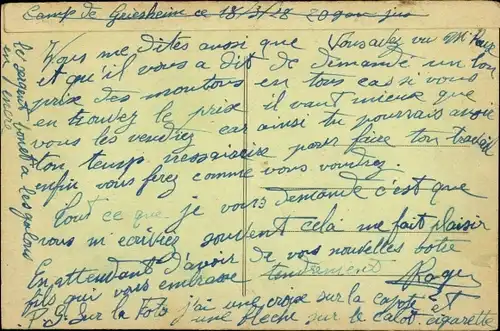 Camp de Griesheim ce 18/3/28
Vous me dites aussi que Vous avez vu Mr
et qu'il vous a dit de demandé un bon
prix des moutons en tous cas si vous
en trouvez le prix il vaut mieux que
vous les vendrez car ainsi tu pourrais avoir
ton temps nessaisaire pour faire ton travail
enfin vous ferez comme vous voudrez.
Tout ce que je vous demande c'est que
vous m'écriviez souvent cela me fait plaisir
En attendant d'avoir de vos nouvelles votre
fils qui vous embrasse tendrement
Roger
P.S. Sur la Foto j'ai une croix sur la capote et
une flèche sur le calot cigarette
le sergent a les galons
en encre